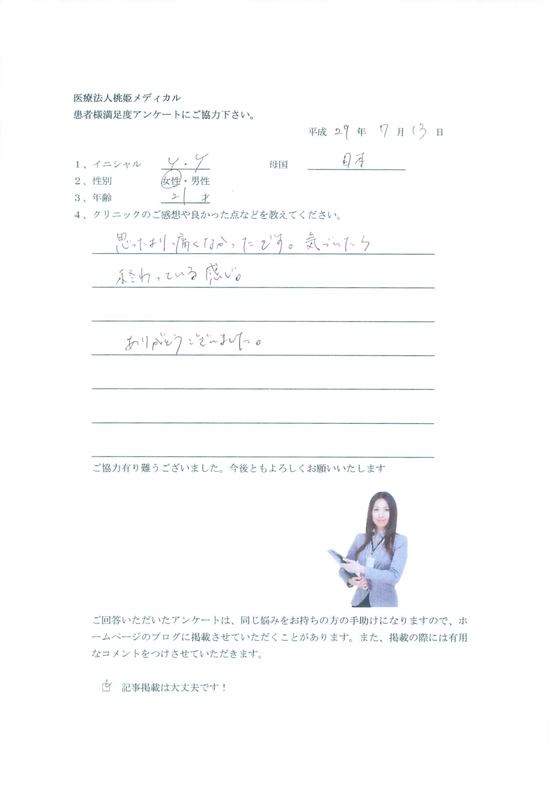 医療法人桃姫メディカル
患者様満足度アンケートにご協力下さい。
平成 29 年 7 月 13 日
1、イニシャル Y・Y 母国 日本
2、性別 女性・男性
3、年齢 21 才
4、クリニックのご感想や良かった点などを教えてください。
思ったより痛くなかったです。気づいたら
終わっている感じ。
ありがとうございました。
ご協力有り難うございました。今後ともよろしくお願いいたします
ご回答いただいたアンケートは、同じ悩みをお持ちの方の手助けになりますので、ホ
ームページのブログに掲載させていただくことがあります。また、掲載の際には有用
なコメントをつけさせていただきます。
記事掲載は大丈夫です！